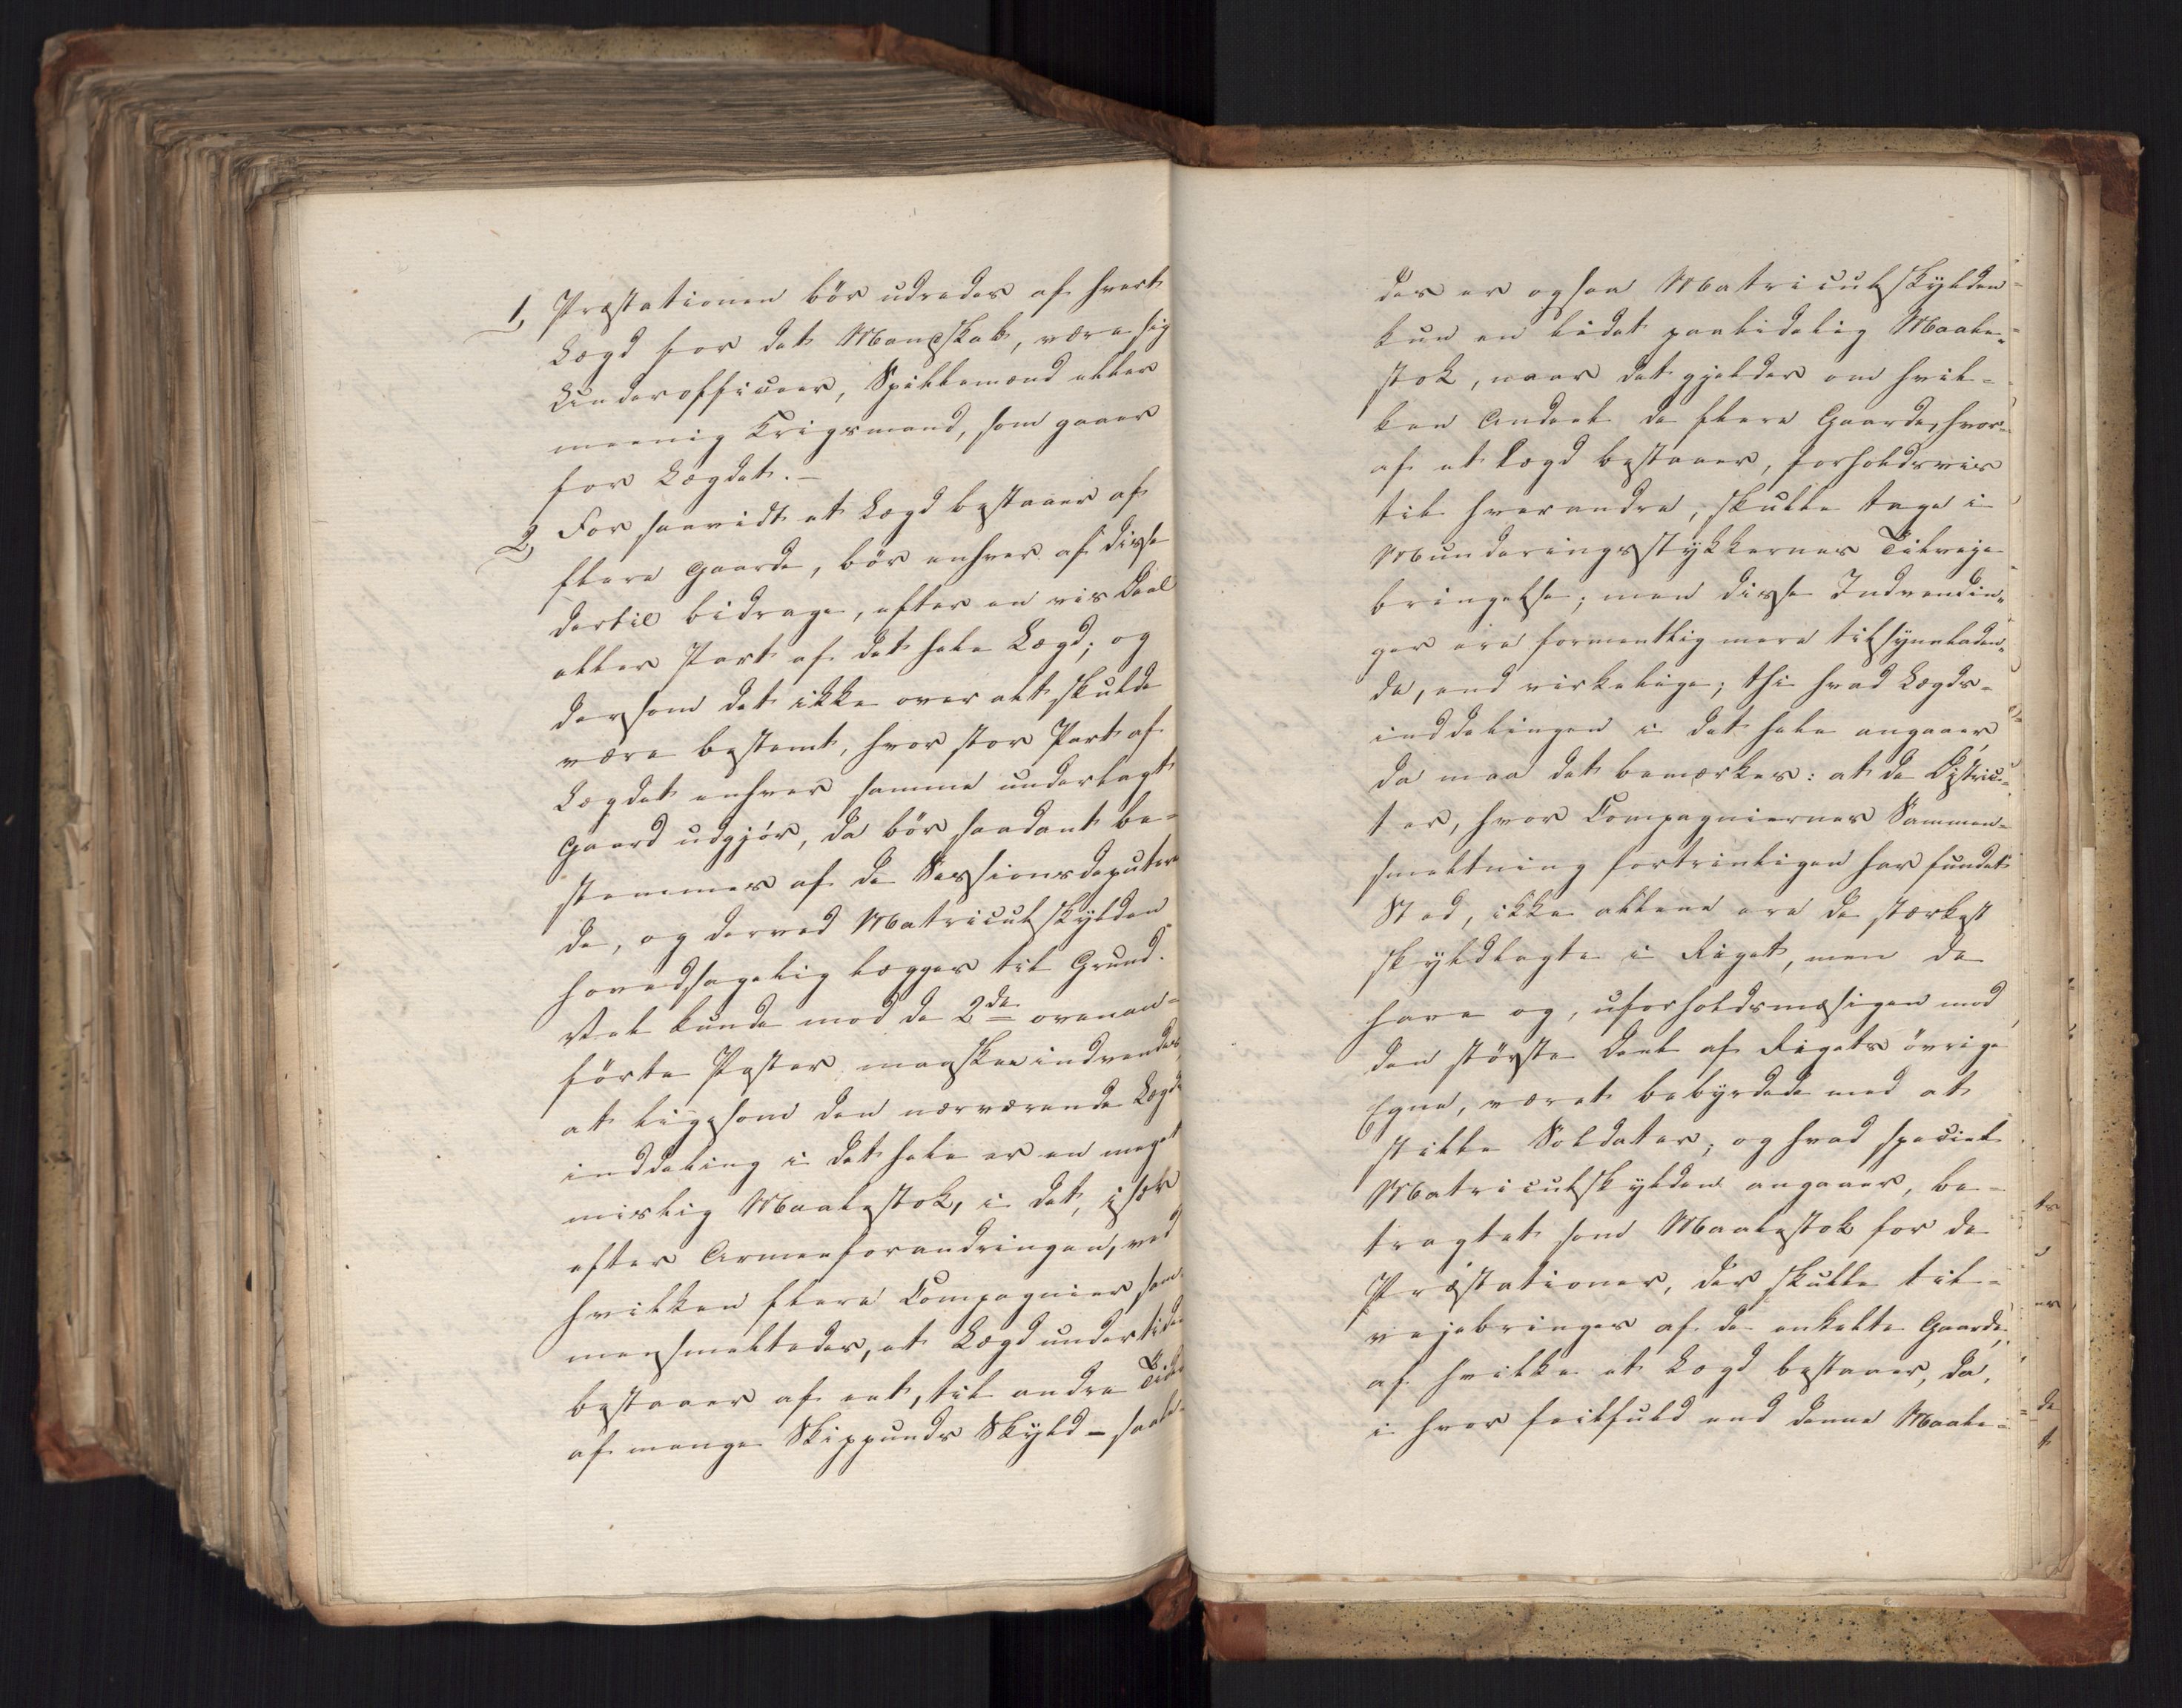 1, Præstationen bör udredes af hvert
Lægd for det Mandskab, være sig
Underofficeer, Spillemænd eller
meenig Krigsmand, som gaaer
for Lægdet. –
2, For saavidt et Lægd bestaaer af
flere Gaarde, bör enhver af disse
dertil bidrage, efter en vis Deel
eller Part af det hele Lægd; og
dersom det ikke over alt skulde
være bestemt, hvor stor Part af
Lægdet enhver samme underlagt
Gaard udgjör, da bör saadant be=
stemmes af de Sessionsdeputere
de, og derved Matriculskylden
hovedsagelig lægges til Grund.
Vel kunde mod de 2de ovenan=
förte Poster maaskee indvendes,
at ligesom den nærværende Lægds
inddeling i det hele er en meget
mislig Maalestok, i det, især
efter Armeeforandringen, ved
hvilken flere Compagnier sam
mensmeltedes, et Lægd undertiden
bestaaer af eet, til andre Tider
af mange Skippunds Skyld – saale=
des er ogsaa Matriculskylden
kun en lidet paalidelig Maale=
stok, naar det gjelder om hvil=
ken Andeel de flere Gaarde, hvor=
af et Lægd bestaaer, forholdsvis
til hverandre, skulle tage i
Munderingsstykkernes Tilveje=
bringelse; men disse Indvendin=
ger ere formentlig mere tilsyneladen=
de, end virkelige; thi hvad Lægds=
inddelingen i det hele angaaer,
da maa det bemærkes: at de Distric=
ter, hvor Compagniernes Sammen=
smeltning fortrinligen har fundet
Sted, ikke allene ere de stærkest
skyldlagte i Riget, men de
have og, uforholdsmæsigen mod
den störste Deel af Rigets övrige
Egne, været bebyrdede med at
stille Soldater; og hvad speciel
Matriculskylden angaaer, be=
tragtet som Maalestok for de
Præstationer, der skulle til=
vejebringes af de enkelte Gaarde,
af hvilke et Lægd bestaaer, da,
i hvor feilfuld end denne Maale=